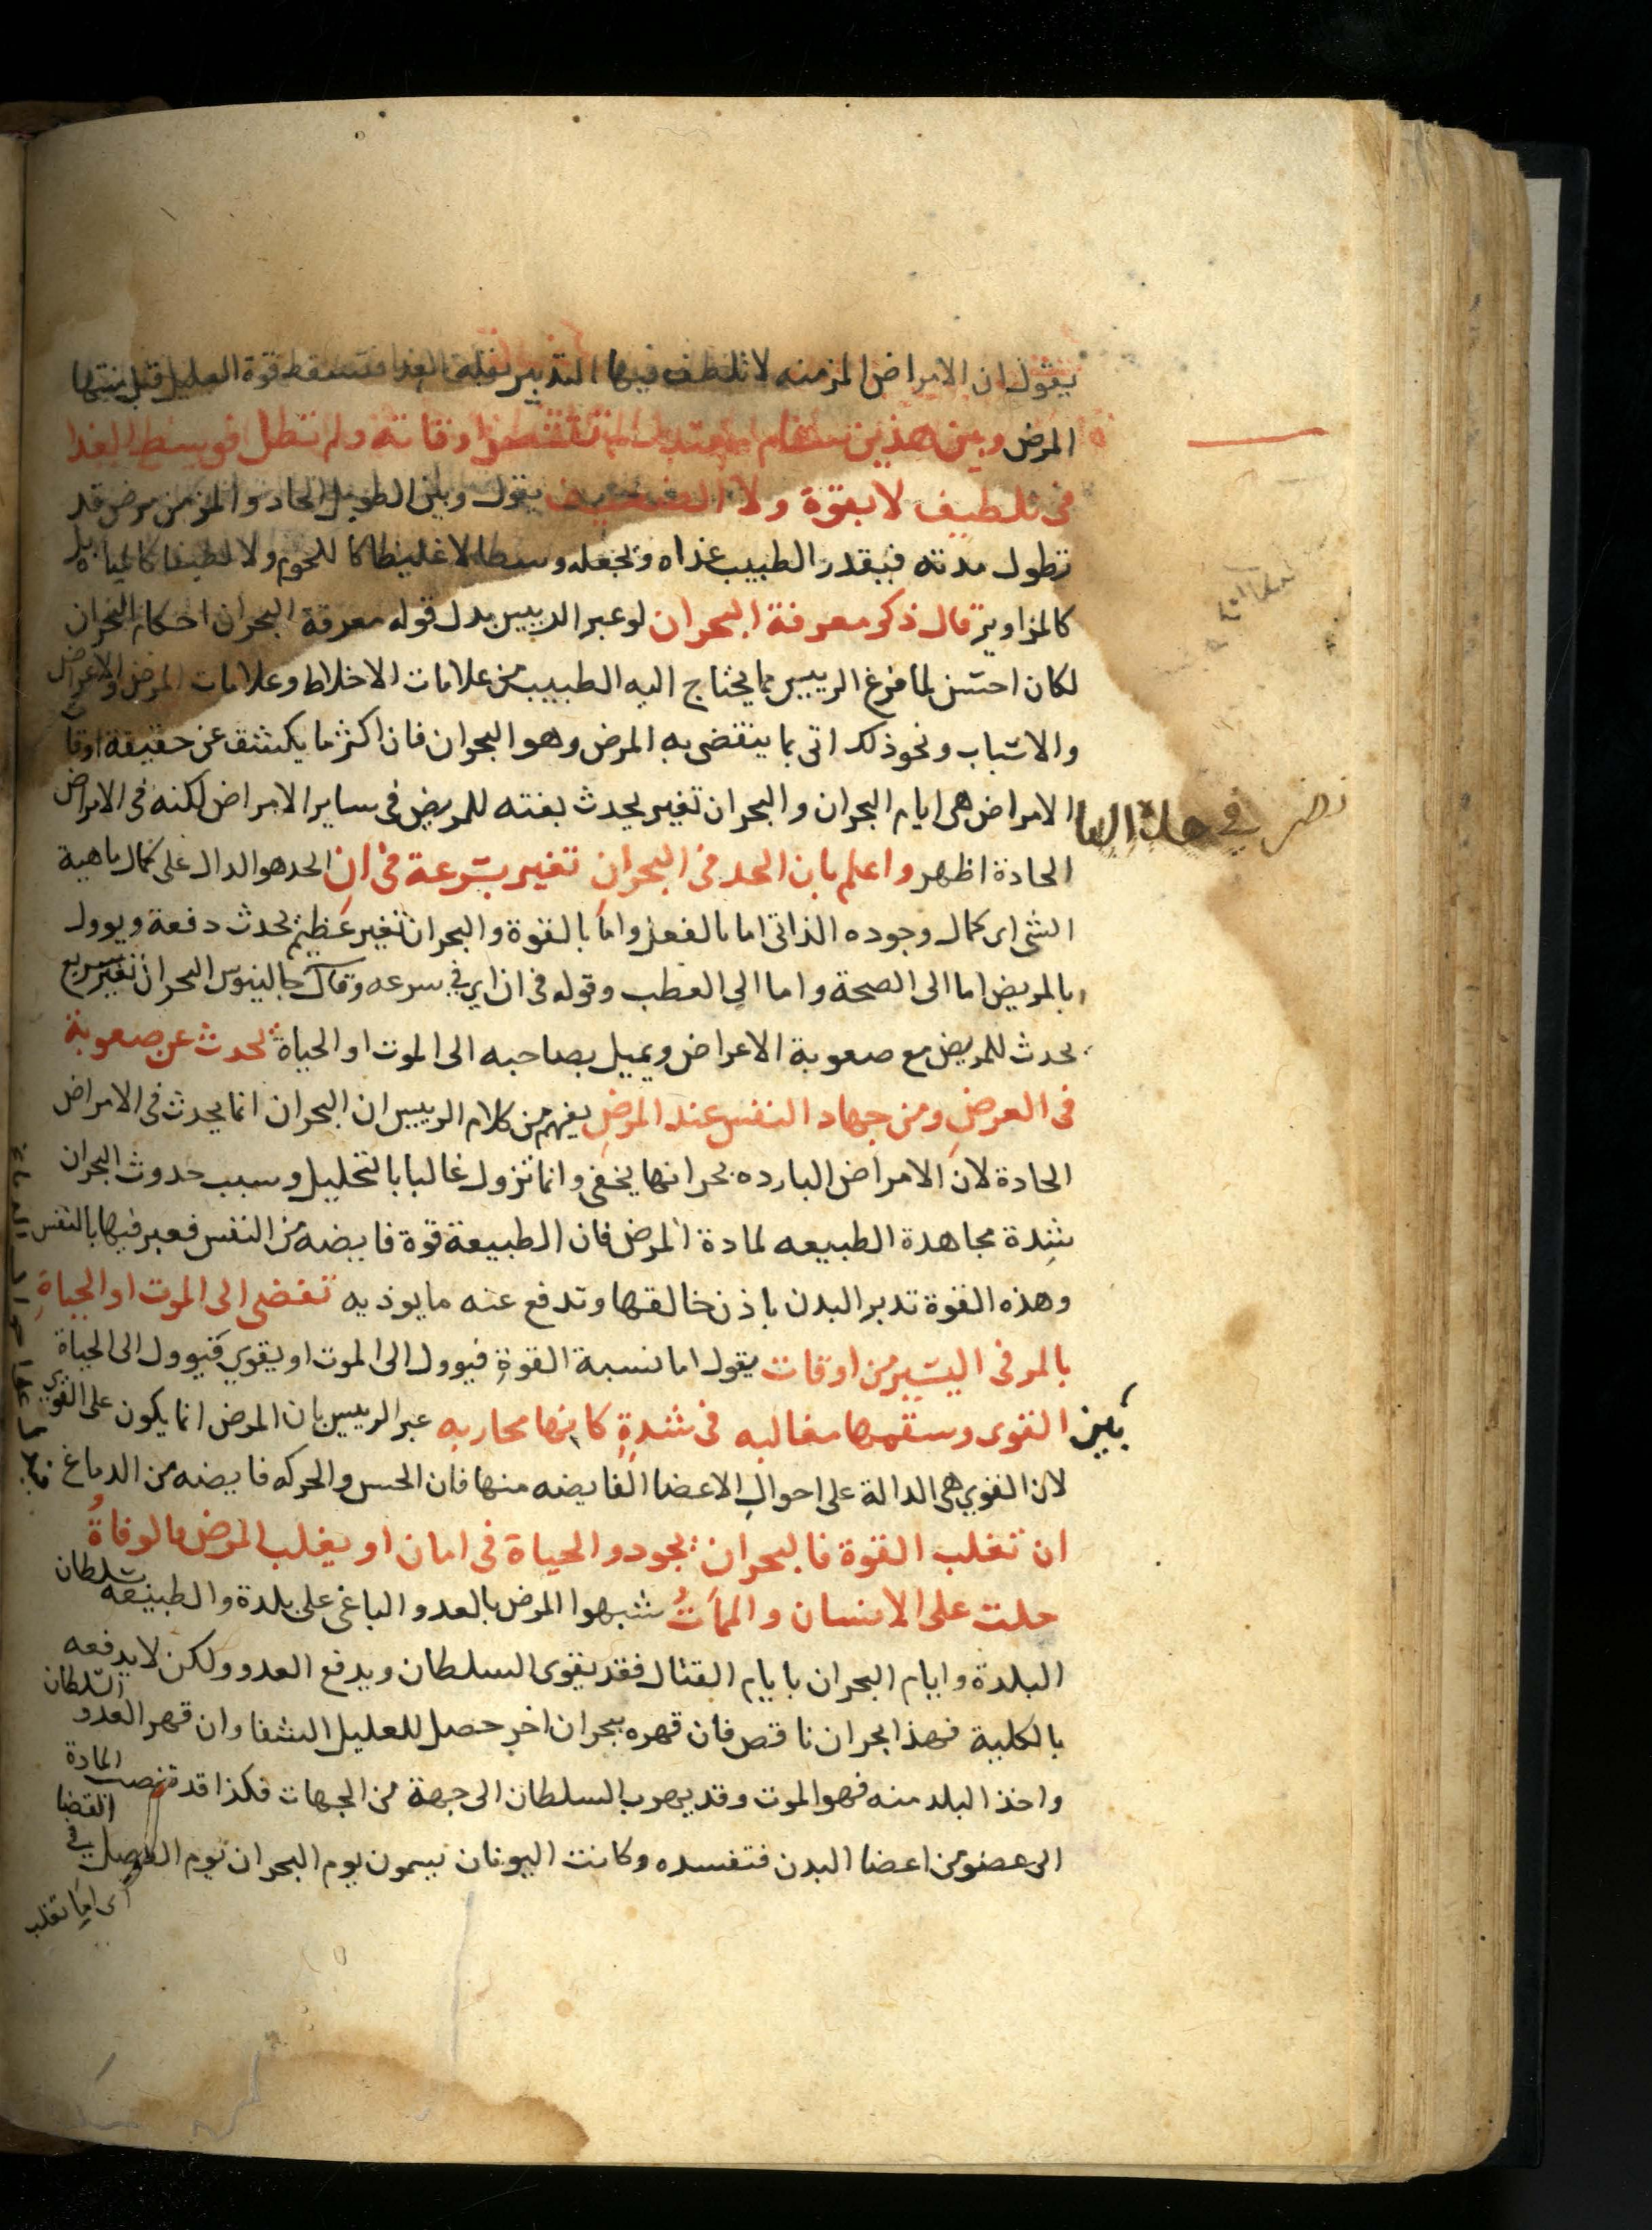 يقول ان الامراض المزمنه لا تلطف فيها التدبير بقلة الغدا فتسقط قوة العليل قبل منتها
المرض وبين هذين سقام اوقاته ولم تطل فوسط الغدا
فى تلطيف لا بقوة ولا التضعيف يقول وبين الطويل الحاد والمزمن مرض قد
تطول مدته فيقدر الطبيب غذاه ويجعله وسطا لا غليظا كا للحوم ولا لطيفا كالمياه بل
كالمزاوير قال ذكر معرفة البحران لو عبر الرييس بدل قوله معرفة البحران احكام البحران
لكان احسن لما فرغ الرييس مما يحتاج اليه الطبيب من علامات الاخلاط وعلامات المرض والاعراض
والاسباب ونحو ذلك اتى بما ينقضى به المرض وهو البحران فان اكثر ما يكشف عن حقيقة اوقات
الامراض هى ايام البحران والبحران تغير يحدث بغته للمريض فى ساير الامراض لكنه فى الامراض
نضر في هذا
الحادة اظهر واعلم بان الحد فى البحران تغير بسرعة فى ان الحد هو الدال على كمال ماهية
الشى اى كمال وجوده الذاتى اما بالفعل واما بالقوة والبحران تغير عظيم يحدث دفعة ويوول
بالمريض اما الى الصحة واما الى العطب وقوله فى ان اى في سرعه وقال جالينوس البحران تغير سريع
يحدث للمريض مع صعوبة الاعراض ويميل بصاحبه الى الموت او الحياة تحدث عن صعوبة
فى العرض ومن جهاد النفس عند المرض يفهم من كلام الرييس ان البحران انما يحدث فى الامراض
الحادة لان الامراض البارده بحرانها يخفى وانما تزول غالبا بالتحليل وسبب حدوث البحران
شدة مجاهدة الطبيعه لمادة المرض فان الطبيعة قوة فايضه من النفس فعبر فيها بالنفس
وهذه القوة تدبر البدن باذن خالقها وتدفع عنه ما يوذيه تفضى الى الموت او الحياة
بالمر فى اليسير من اوقات يقول اما نسبة القوة فيوول الى الموت او يقوي فيوول الى الحياة
بين القوى وسقمها مغالبه فى شدة كانها محاربه عبر الرييس بان المرض انما يكون على القوى
لان القوي هى الدالة على احوال الاعضا الفايضه منها فان الحس والحركه فايضه من الدماغ
ان تغلب القوة فالبحران بجود والحياة فى امان او يغلب المرض فالوفاة
حلت على الانسان والممات شبهوا المرض بالعدو الباغى على بلدة والطبيعه سلطان
البلدة وايام البحران بايام القتال فقد يقوى السلطان ويدفع العدو ولكن لا يدفعه
بالكلية فهذا بحران ناقص فان قهره ببحران اخر حصل للعليل الشفا وان قهر العدو السلطان
واخذ البلد منه فهو الموت وقد يهرب السلطان الى جهة من الجهات فكذا قد تنصب المادة
الى عضو من اعضا البدن فتفسده وكانت اليونان يسمون يوم البحران يوم الفصل في القضا
اى